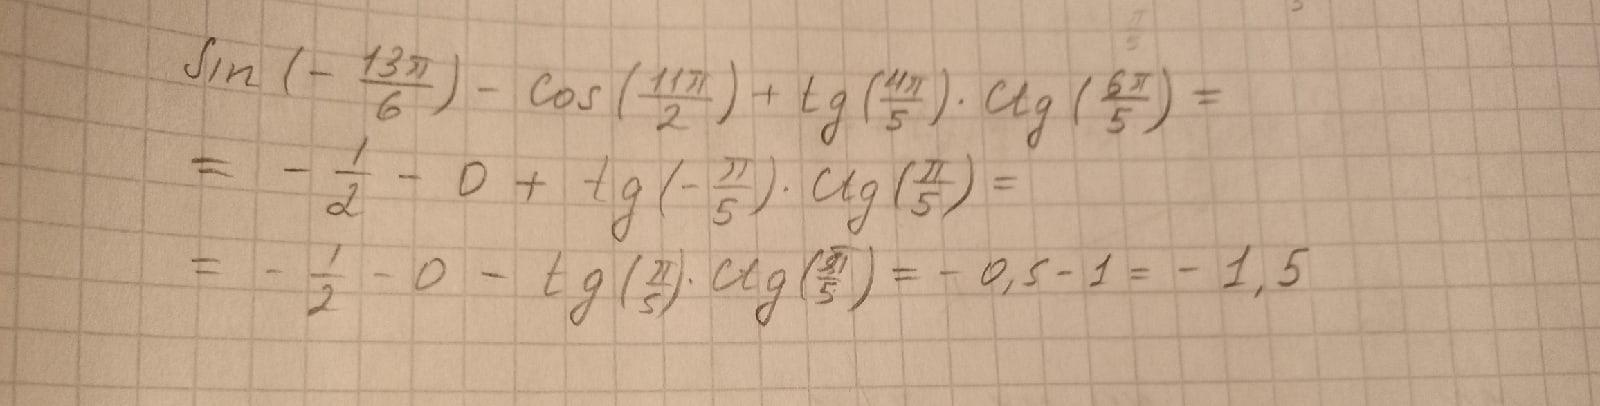 sin (- 13π/6) - cos (11π/2) + tg (4π/5) · ctg (6π/5) =
= - 1/2 - 0 + tg (- π/5) · ctg (π/5) =
= - 1/2 - 0 - tg (π/5) · ctg (π/5) = - 0,5 - 1 = - 1,5